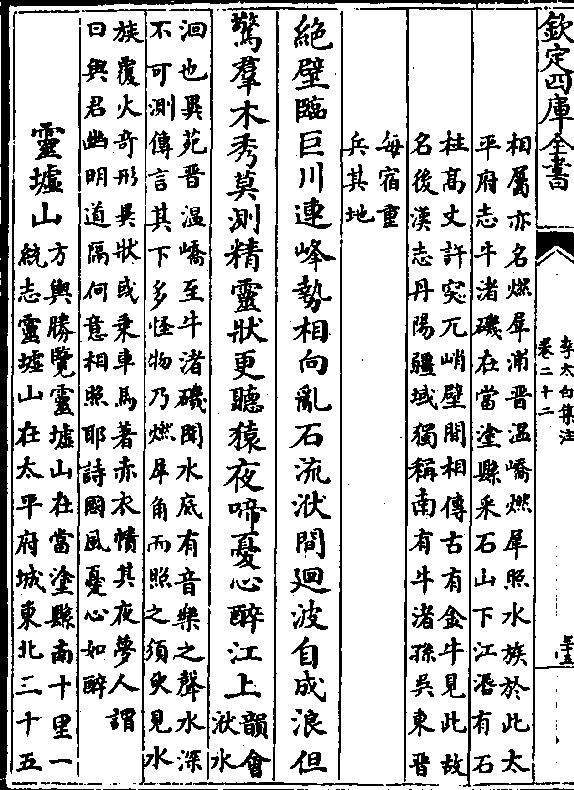 欽定四庫全書
李太白集注
卷二十二
三十五
相屬亦名燃犀浦晉温嶠燃犀照水族於此太
平府志牛渚磯在當塗縣采石山下江滣有石
柱高丈許突兀峭壁間相傳古有金牛見此故
名後漢志丹陽疆域獨稱南有牛渚孫吳東晉
每宿重
兵其地
絶壁臨巨川連峰勢相向亂石流洑間廻波自成浪但
驚羣木秀莫測精靈狀更聽猿夜啼憂心醉江上
韻會
洑水
洄也異苑晉温嶠至牛渚磯聞水底有音樂之聲水深
不可測傳言其下多怪物乃燃犀角而照之須臾見水
族覆火竒形異狀或乗車馬著赤衣幘其夜夢人謂
曰與君幽明道隔何意相照耶詩國風憂心如醉
靈墟山
方輿勝覽靈墟山在當塗縣南十里一
統志靈墟山在太平府城東北三十五